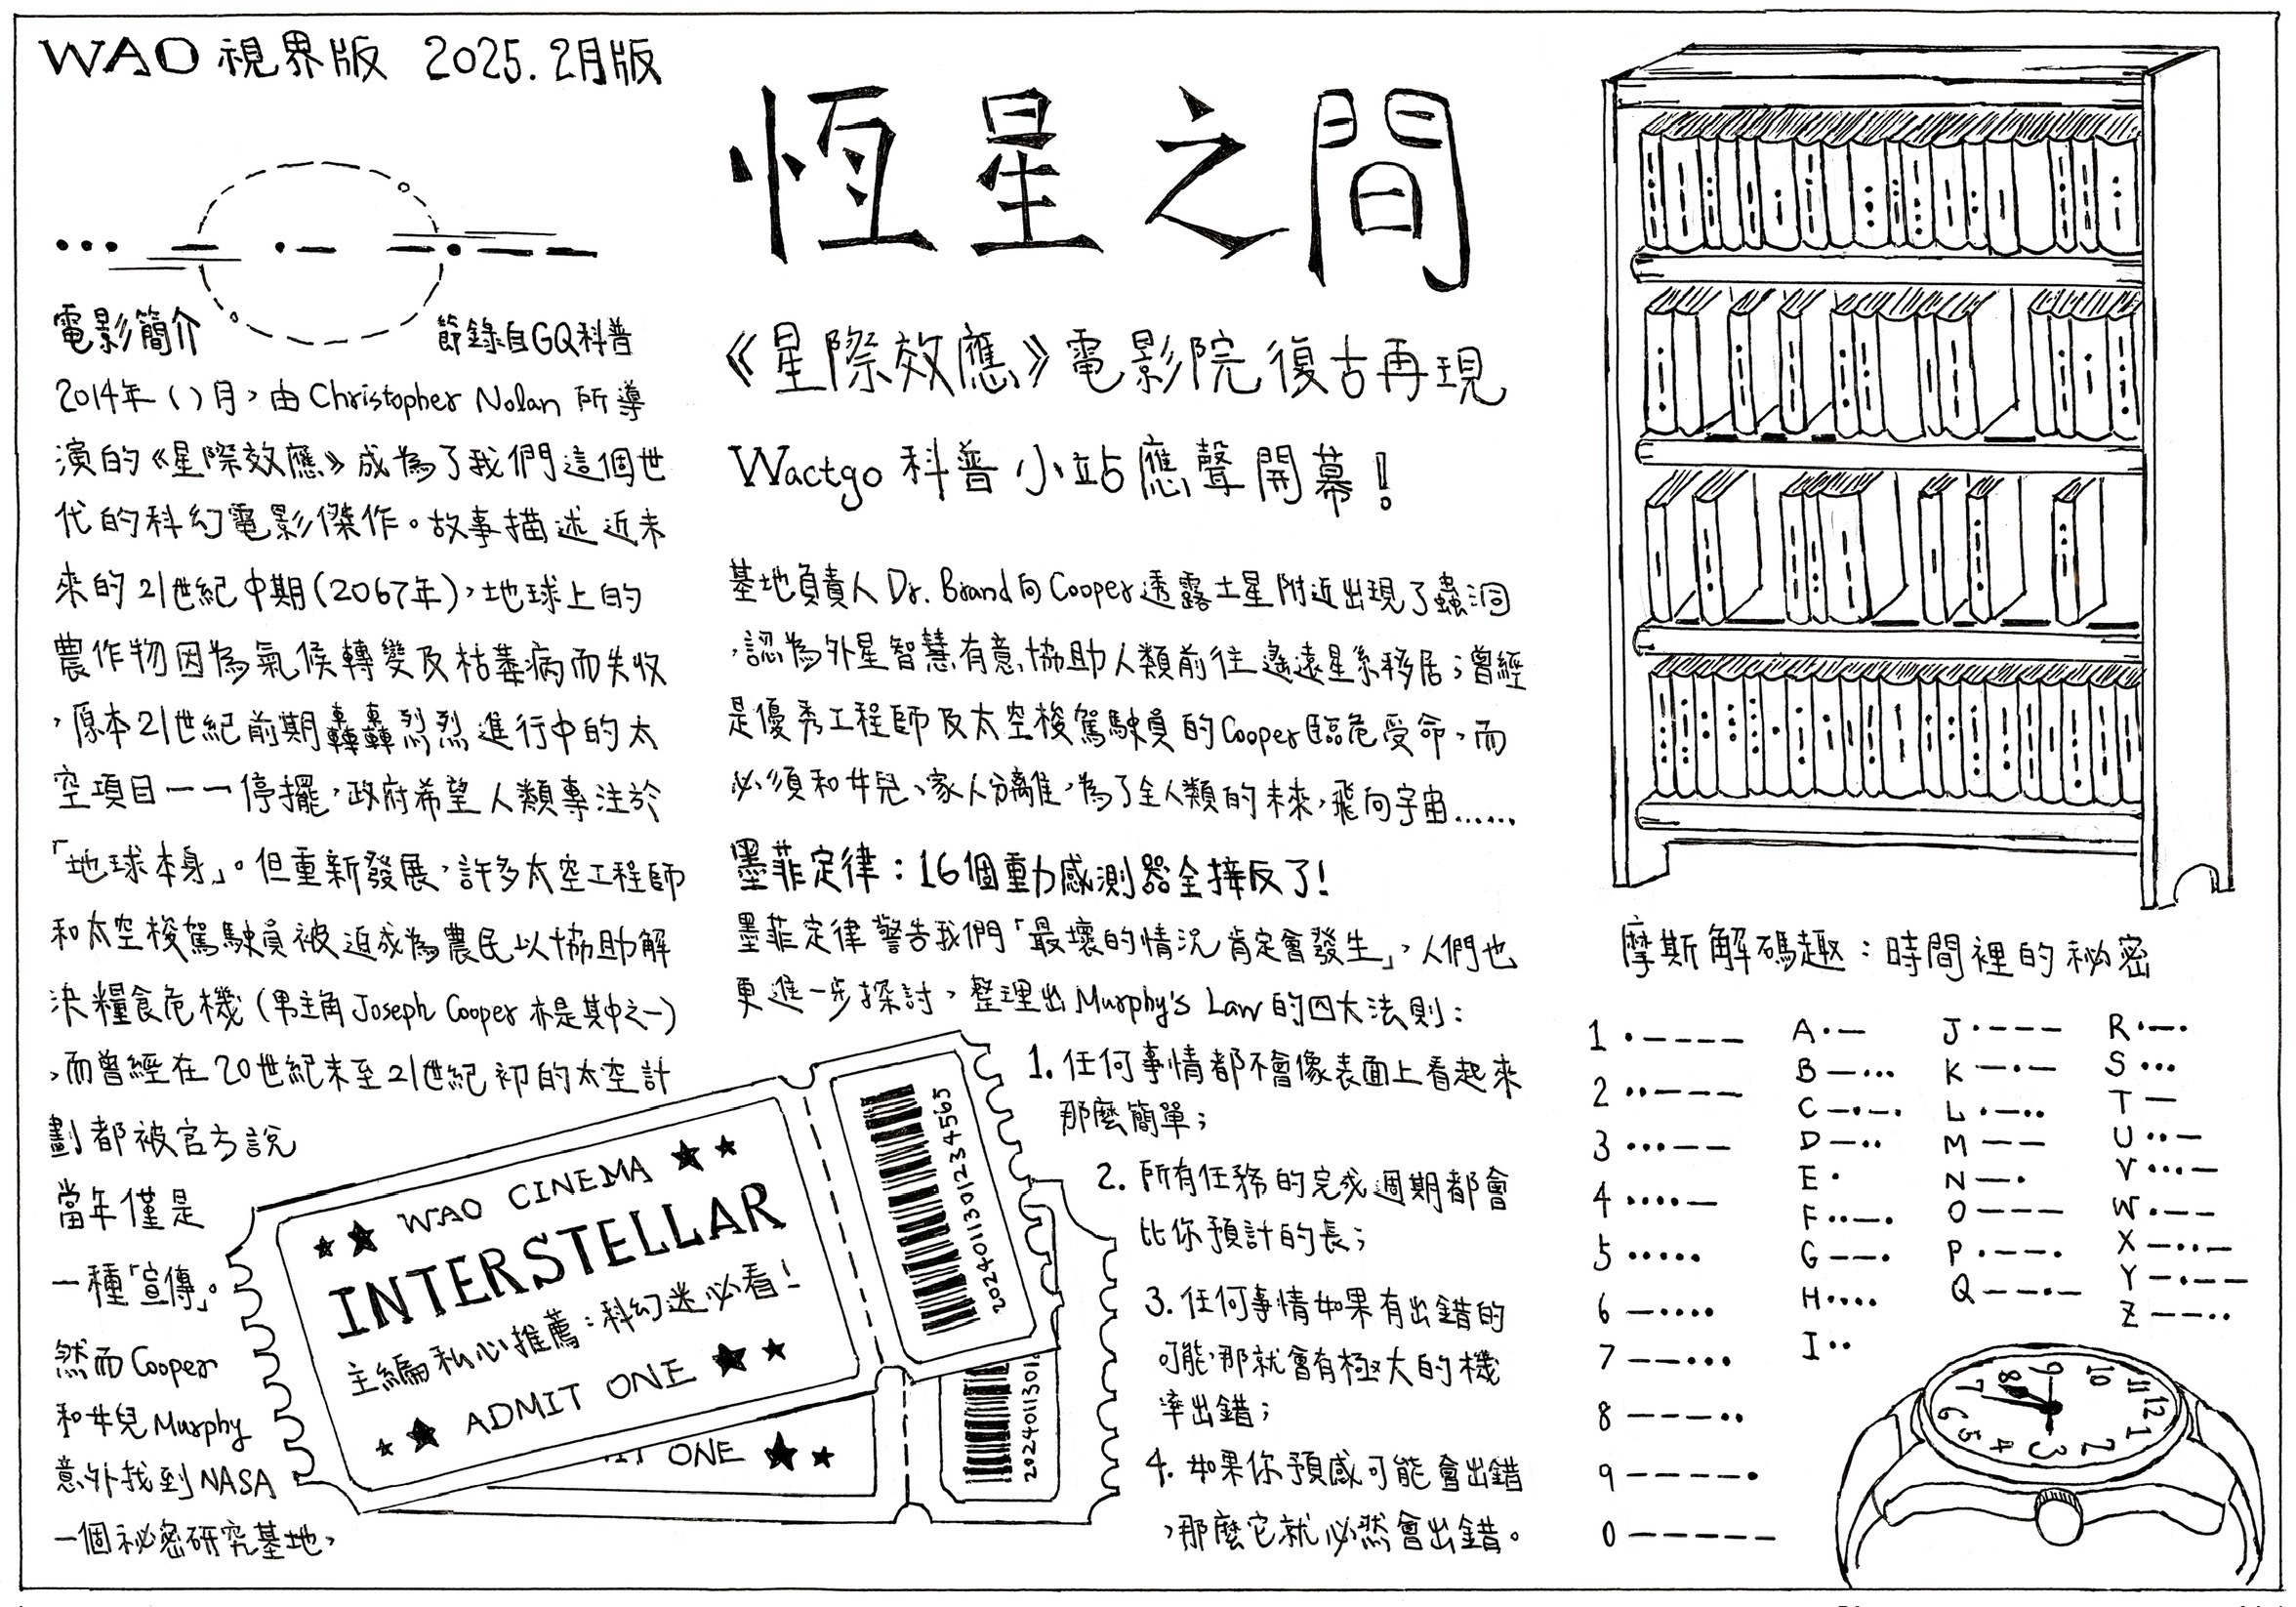 WAO 視界版 2025.2月版
恆星之間
••• — •— •— —
電影簡介
節錄自GQ科普
2014年()月，由 Christopher Nolan 所導
演的《星際效應》成為了我們這個世
代的科幻電影傑作。故事描述近未
來的21世紀中期(2067年)，地球上的
農作物因為氣候轉變及枯萎病而失收
，原本21世紀前期轟轟烈烈進行中的太
空項目一一停擺，政府希望人類專注於
「地球本身」。但重新發展，許多太空工程師
和太空梭駕駛員被迫成為農民以協助解
決糧食危機(男主角Joseph Cooper亦是其中之一)
，而曾經在20世紀末至21世紀初的太空計
劃都被官方說
當年僅是
一種「宣傳」。
然而Cooper
和女兒Murphy
意外找到NASA
一個祕密研究基地，
《星際效應》電影院復古再現
Wactgo 科普小站應聲開幕！
基地負責人Dr. Brand向Cooper透露土星附近出現了蟲洞
，認為外星智慧有意協助人類前往遙遠星系移居；曾經
是優秀工程師及太空梭駕駛員的Cooper臨危受命，而
必須和女兒、家人分離，為了全人類的未來，飛向宇宙……
墨菲定律：16個重力感測器全接反了！
墨菲定律警告我們「最壞的情況肯定會發生」，人們也
更進一步探討，整理出Murphy's Law的四大法則：
1. 任何事情都不會像表面上看起來
那麼簡單；
2. 所有任務的完成週期都會
比你預計的長；
3. 任何事情如果有出錯的
可能，那就會有極大的機
率出錯；
4. 如果你預感可能會出錯
，那麼它就必然會出錯。
WAO CINEMA
INTERSTELLAR
主編私心推薦：科幻迷必看！
ADMIT ONE
2024011301234565
IT ONE
2024011301
摩斯解碼趣：時間裡的秘密
1 •————
2 ••———
3 •••——
4 ••••—
5 •••••
6 —••••
7 ——•••
8 ———••
9 ————•
0 —————
A •—
B —•••
C —•—•
D —••
E •
F ••—•
G ——•
H ••••
I ••
J •———
K —•—
L •—••
M ——
N —•
O ———
P •——•
Q ——•—
R •—•
S •••
T —
U ••—
V •••—
W •——
X —••—
Y —•——
Z ——••
12 1 2 3 4 5 6 7 8 9 10 11